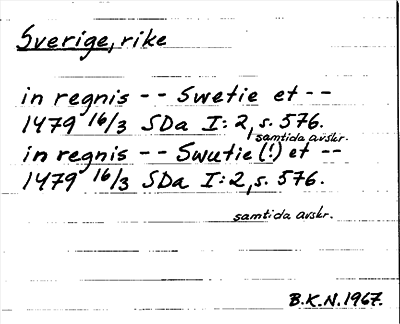 Sverige, rike
in regnis -- Swetie et --
1479 16/3 SDa I:2, s. 576.
samtida avskr.
in regnis -- Swutie (!) et --
1479 16/3 SDa I:2, s. 576.
samtida avskr.
B.K.N. 1967.